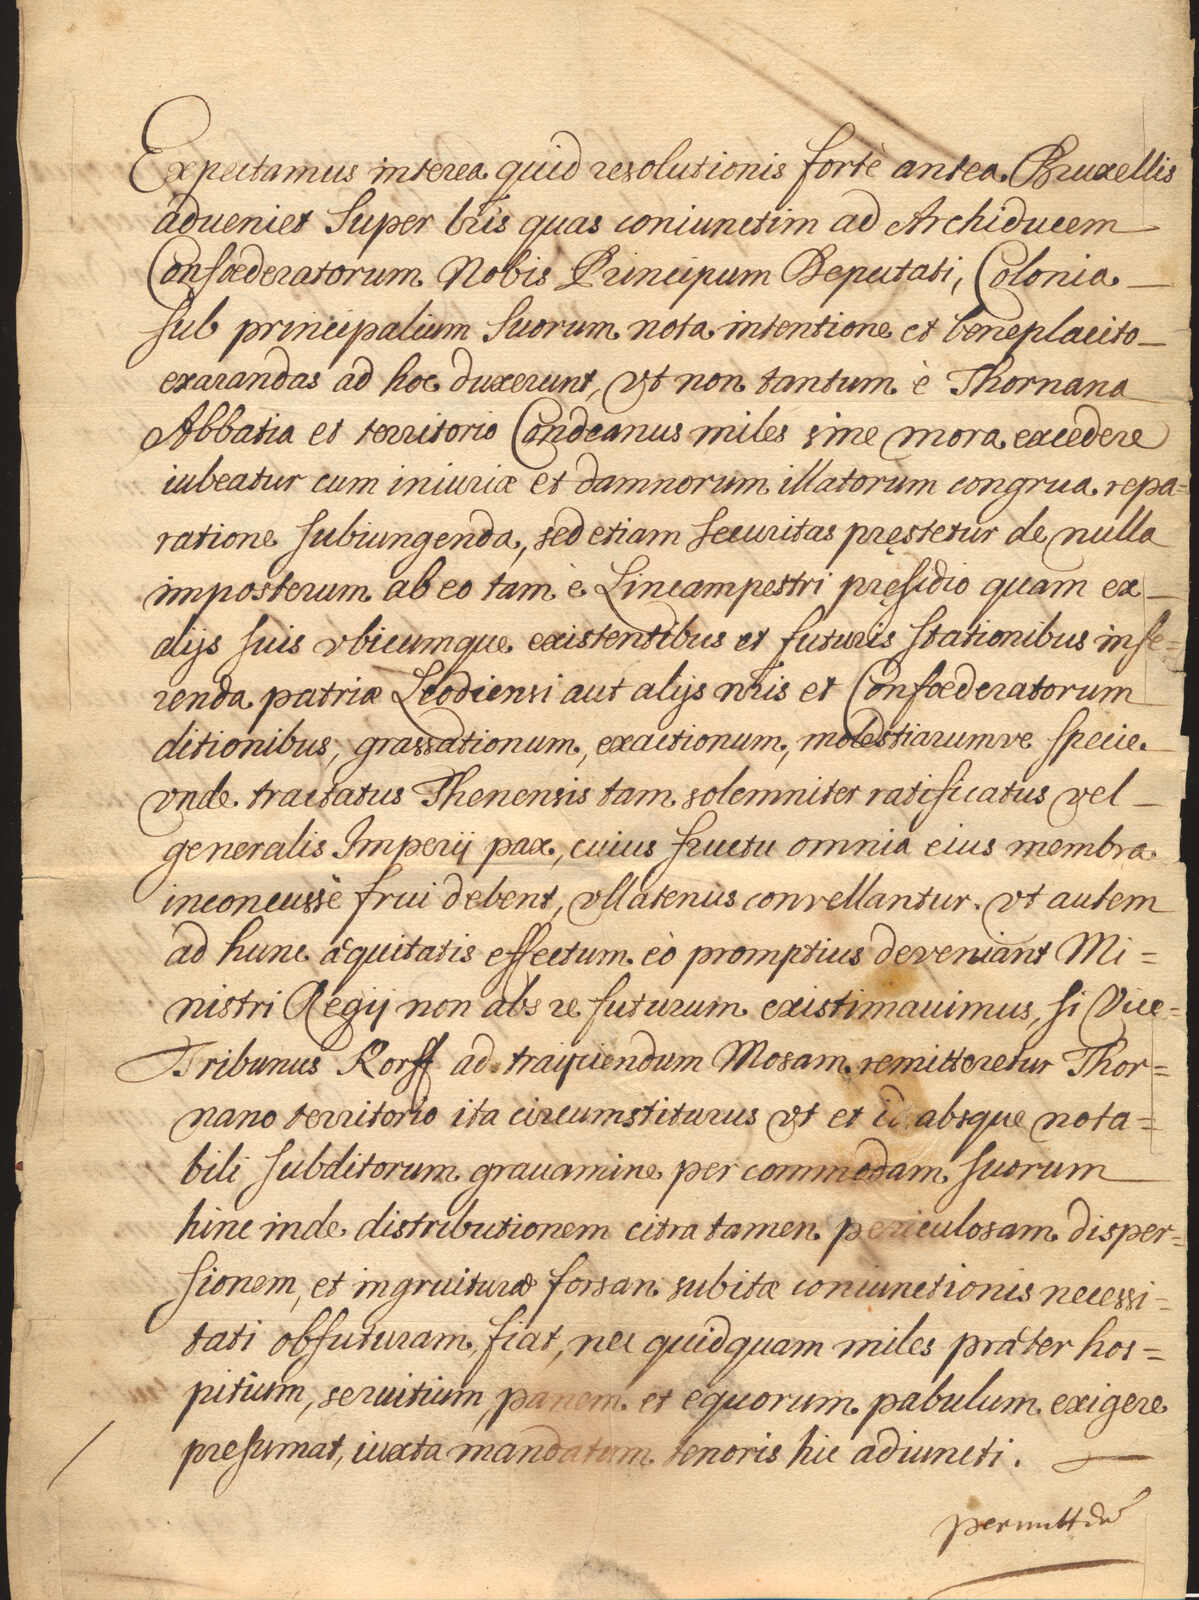 Expectamus interea quid resolutionis fortè antea Bruxellis
adueniet super lris quas coniunctim ad Archiducem
Confœderatorum Nobis Principum Deputati, Colonia
sub principalium suorum nota intentione et beneplacito
exarandas ad hoc duxerunt, vt non tantum è Thornana
Abbatia et territorio Condeanus miles sine mora excedere
iubeatur cum iniuriæ et damnorum illatorum congrua repa=
ratione subiungenda, sed etiam securitas pręstetur de nulla
imposterum ab eo tam è Lincampestri pręsidio quam ex
alijs suis vbicumque existentibus et futuris stationibus infe=
renda patriæ Leodiensi aut alijs nris et Confœderatorum
ditionibus, grassationum, exactionum, molestiarumve specie
vnde tractatus Thenensis tam solemniter ratificatus vel
generalis Imperij pax, cuius fructu omnia eius membra
inconcussè frui debent, vllatenus convellantur. vt autem
ad hunc æquitatis effectum eò promptius deveniant Mi=
nistri Regij non abs re futurum existimauimus, si Vice=
Tribunus Korff ad traijciendum Mosam remitteretur Thor=
nano territorio ita circumstiturus vt et id absque nota=
bili subditorum grauamine per commodam suorum
hinc inde distributionem citra tamen periculosam disper=
sionem, et ingruituræ forsan subitæ coniunctionis necessi=
tati obfuturam, fiat, nec quidquam miles præter hos=
pitium, seruitium, panem et equorum pabulum exigere
presumat, iuxta mandatum tenoris hic adiuncti.